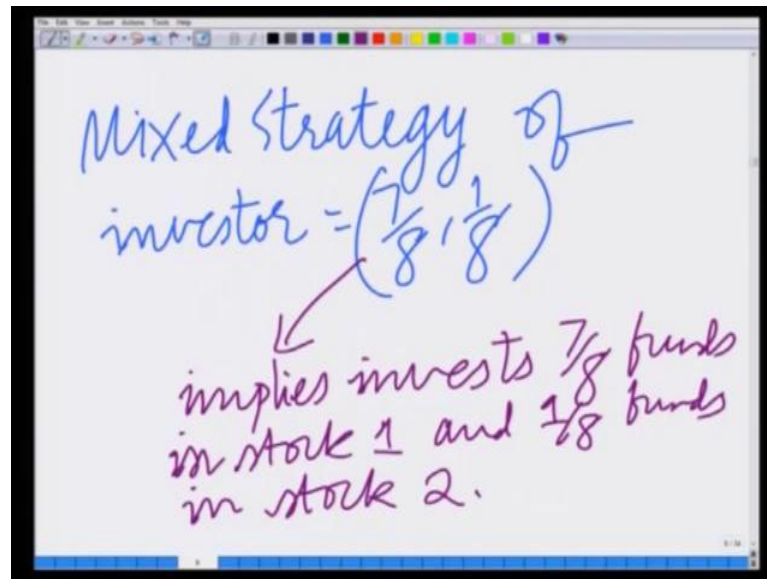 File Edit View Insert Actions Tools Help
Mixed Strategy of
investor = (7/8, 1/8)
implies invests 7/8 funds
in stock 1 and 1/8 funds
in stock 2.